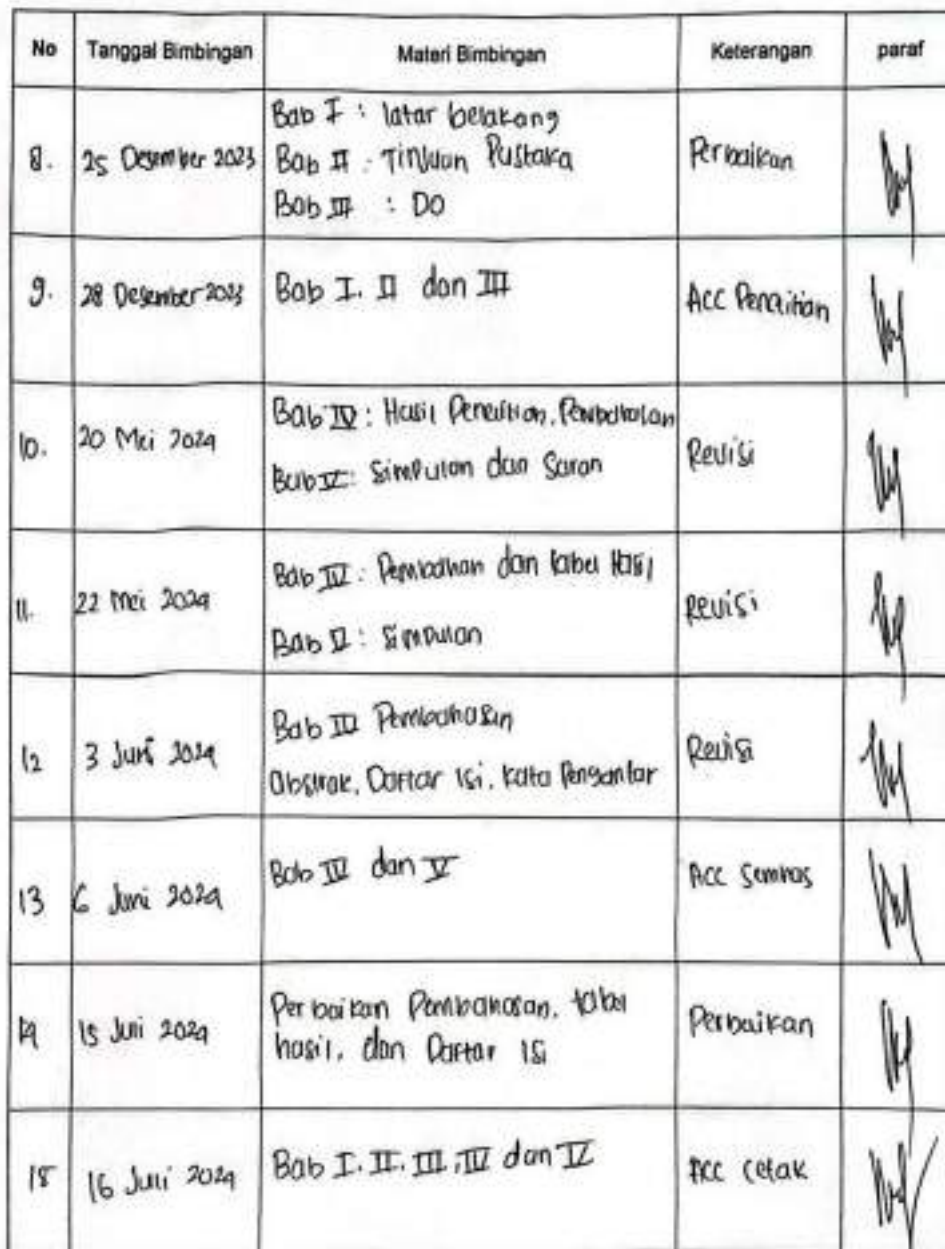 No Tanggal Bimbingan Materi Bimbingan Keterangan paraf
8. 25 Desember 2023 Bab I : latar belakang Perbaikan
Bab II : Tinjuan Pustaka
Bab III : DO
9. 28 Desember 2023 Bab I. II dan III Acc Penelitian
10. 20 Mei 2024 Bab IV : Hasil Penelitian, Pembahasan Revisi
Bab V : Simpulan dan Saran
11. 22 Mei 2024 Bab IV : Pembahan dan tabel Hasil Revisi
Bab V : Simpulan
12 3 Juni 2024 Bab IV Pembahasan Revisi
Abstrak, Daftar Isi, Kata Pengantar
13 6 Juni 2024 Bab IV dan V Acc Semhas
14 15 Juli 2024 Perbaikan Pembahasan, tabel Perbaikan
hasil, dan Daftar Isi
15 16 Juli 2024 Bab I. II. III, IV dan V Acc Cetak